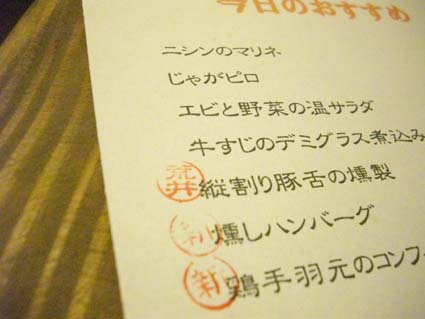 今日のおすすめ
ニシンのマリネ
じゃがピロ
エビと野菜の温サラダ
牛すじのデミグラス煮込み
荒井 縦割り豚舌の燻製
新 燻しハンバーグ
新 鶏手羽元のコンフィ